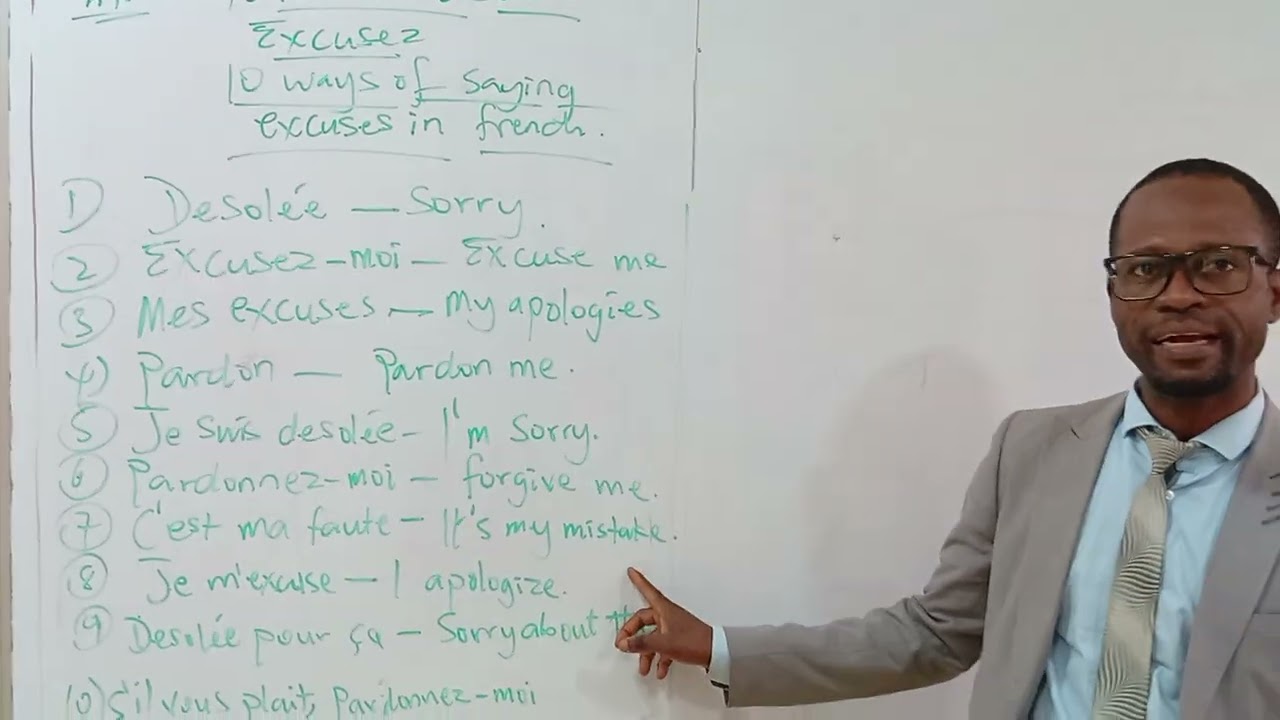 Excusez
10 ways of saying
excuses in french.
1) Desolée — Sorry.
2 Excusez-moi — Excuse me
3 Mes excuses — My apologies
4) Pardon — Pardon me.
5 Je suis desolée - I'm Sorry.
6 Pardonnez-moi — forgive me.
7 C'est ma faute — It's my mistake.
8 Je m'excuse — I apologize.
9 Desolée pour ça — Sorry about
10) S'il vous plait, Pardonnez-moi